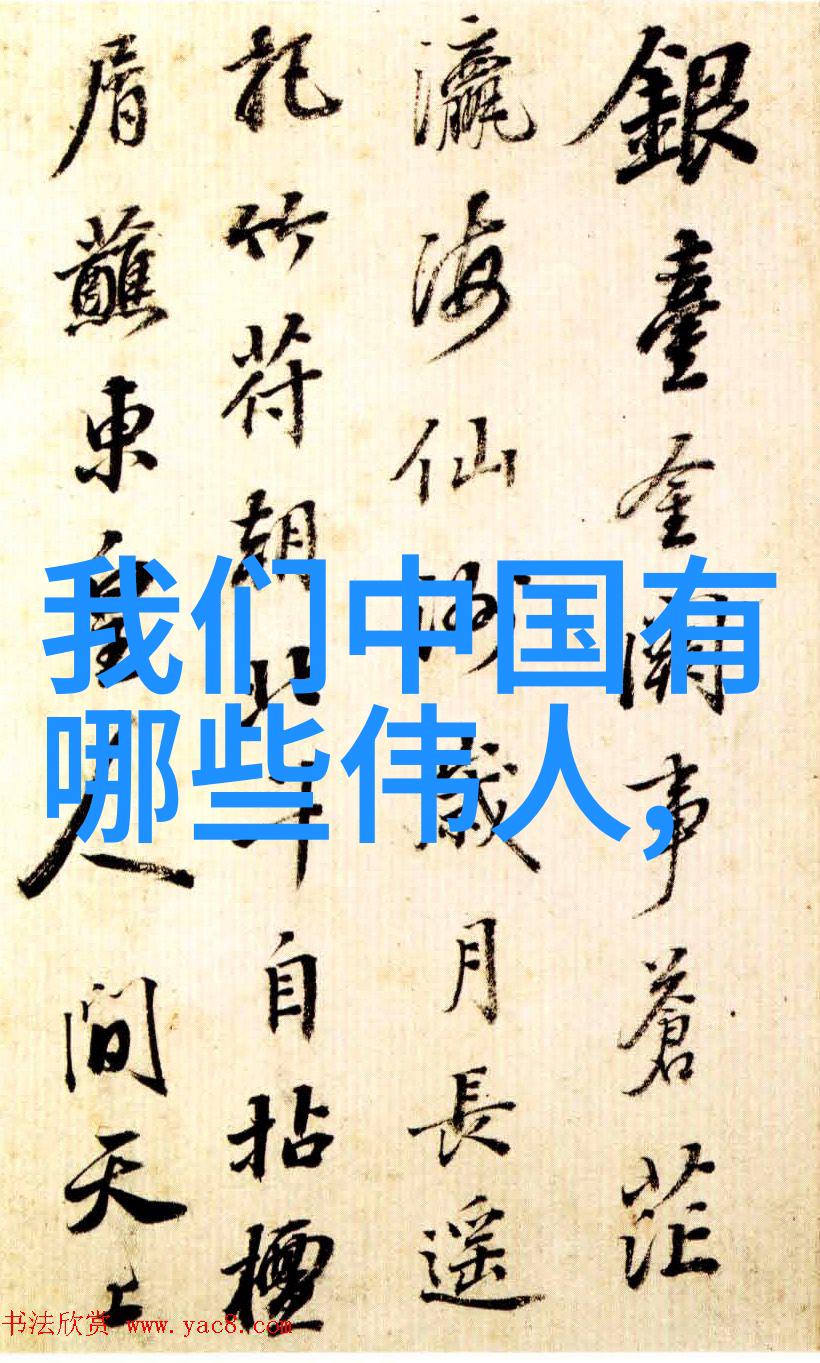 銀臺金闕事蒼茫
瀛海仙洲歲月長遥
記竹符朝北斗自拈檀
屑蘸東皇人間天上
我们中国有
哪些伟人，
书法欣赏 www.yac8.com